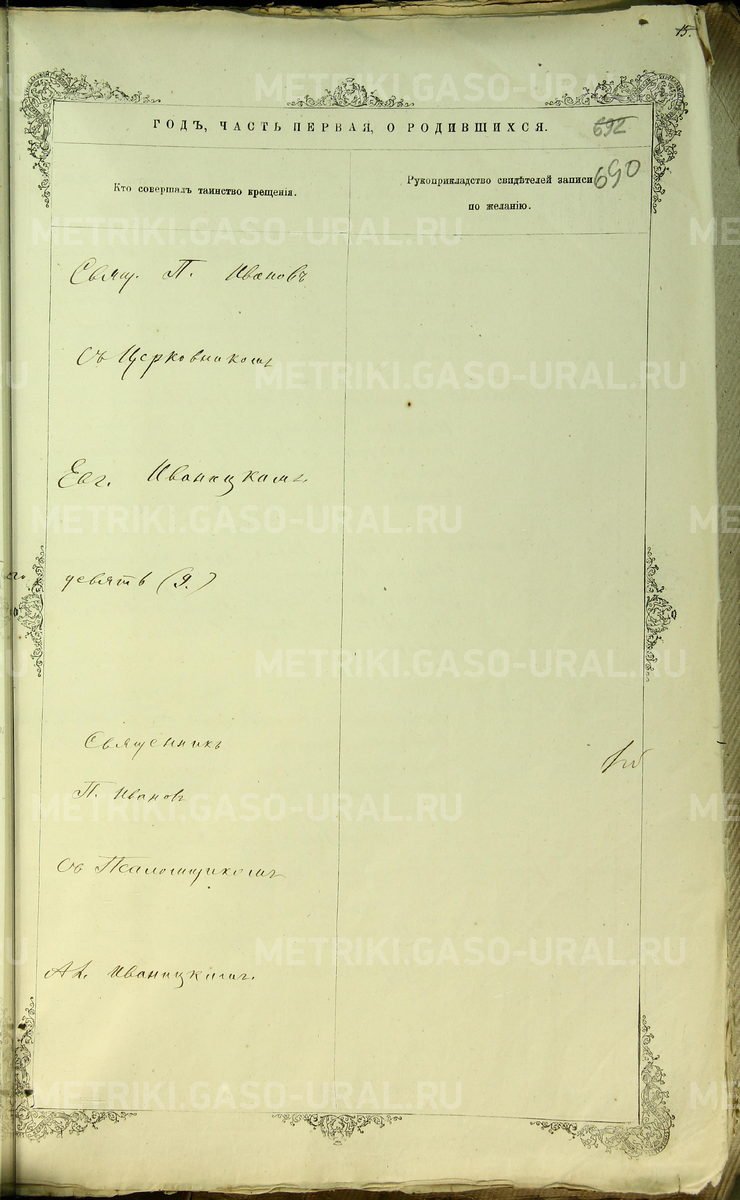 15.
ГОДЪ, ЧАСТЬ ПЕРВАЯ, О РОДИВШИХСЯ.
692
690
Кто совершалъ таинство крещенія.
Рукоприкладство свидѣтелей записи
по желанію.
Свящ. П. Ивановъ
съ Церковникомъ
Евг. Иваницкимъ.
девять (9.)
Священникъ
П. Ивановъ
съ Псаломщикомъ
Иваницкимъ.
METRIKI.GASO-URAL.RU